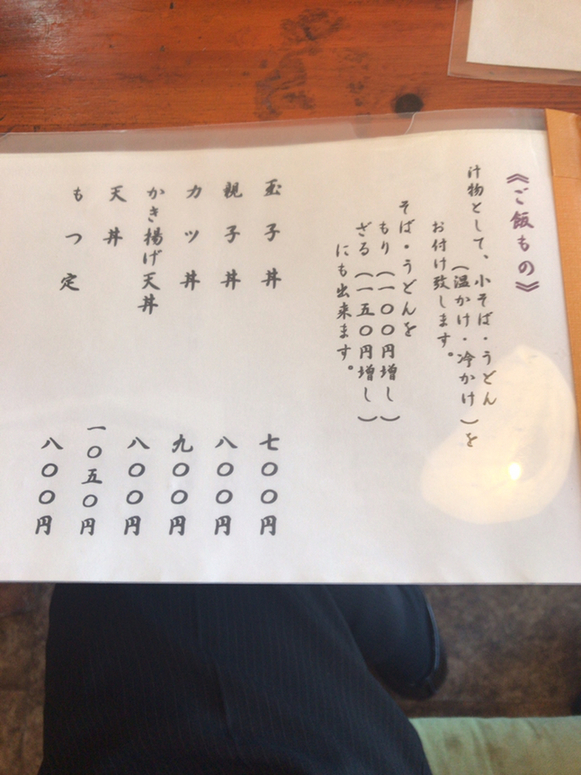 《ご飯もの》
汁物として、小そば・うどん
(温かけ・冷かけ)を
お付け致します。
そば・うどんを
もり(一〇〇円増し)
ざる(一五〇円増し)
にも出来ます。
玉子丼 七〇〇円
親子丼 八〇〇円
カツ丼 九〇〇円
かき揚げ天丼 八〇〇円
天丼 一〇五〇円
もつ定 八〇〇円